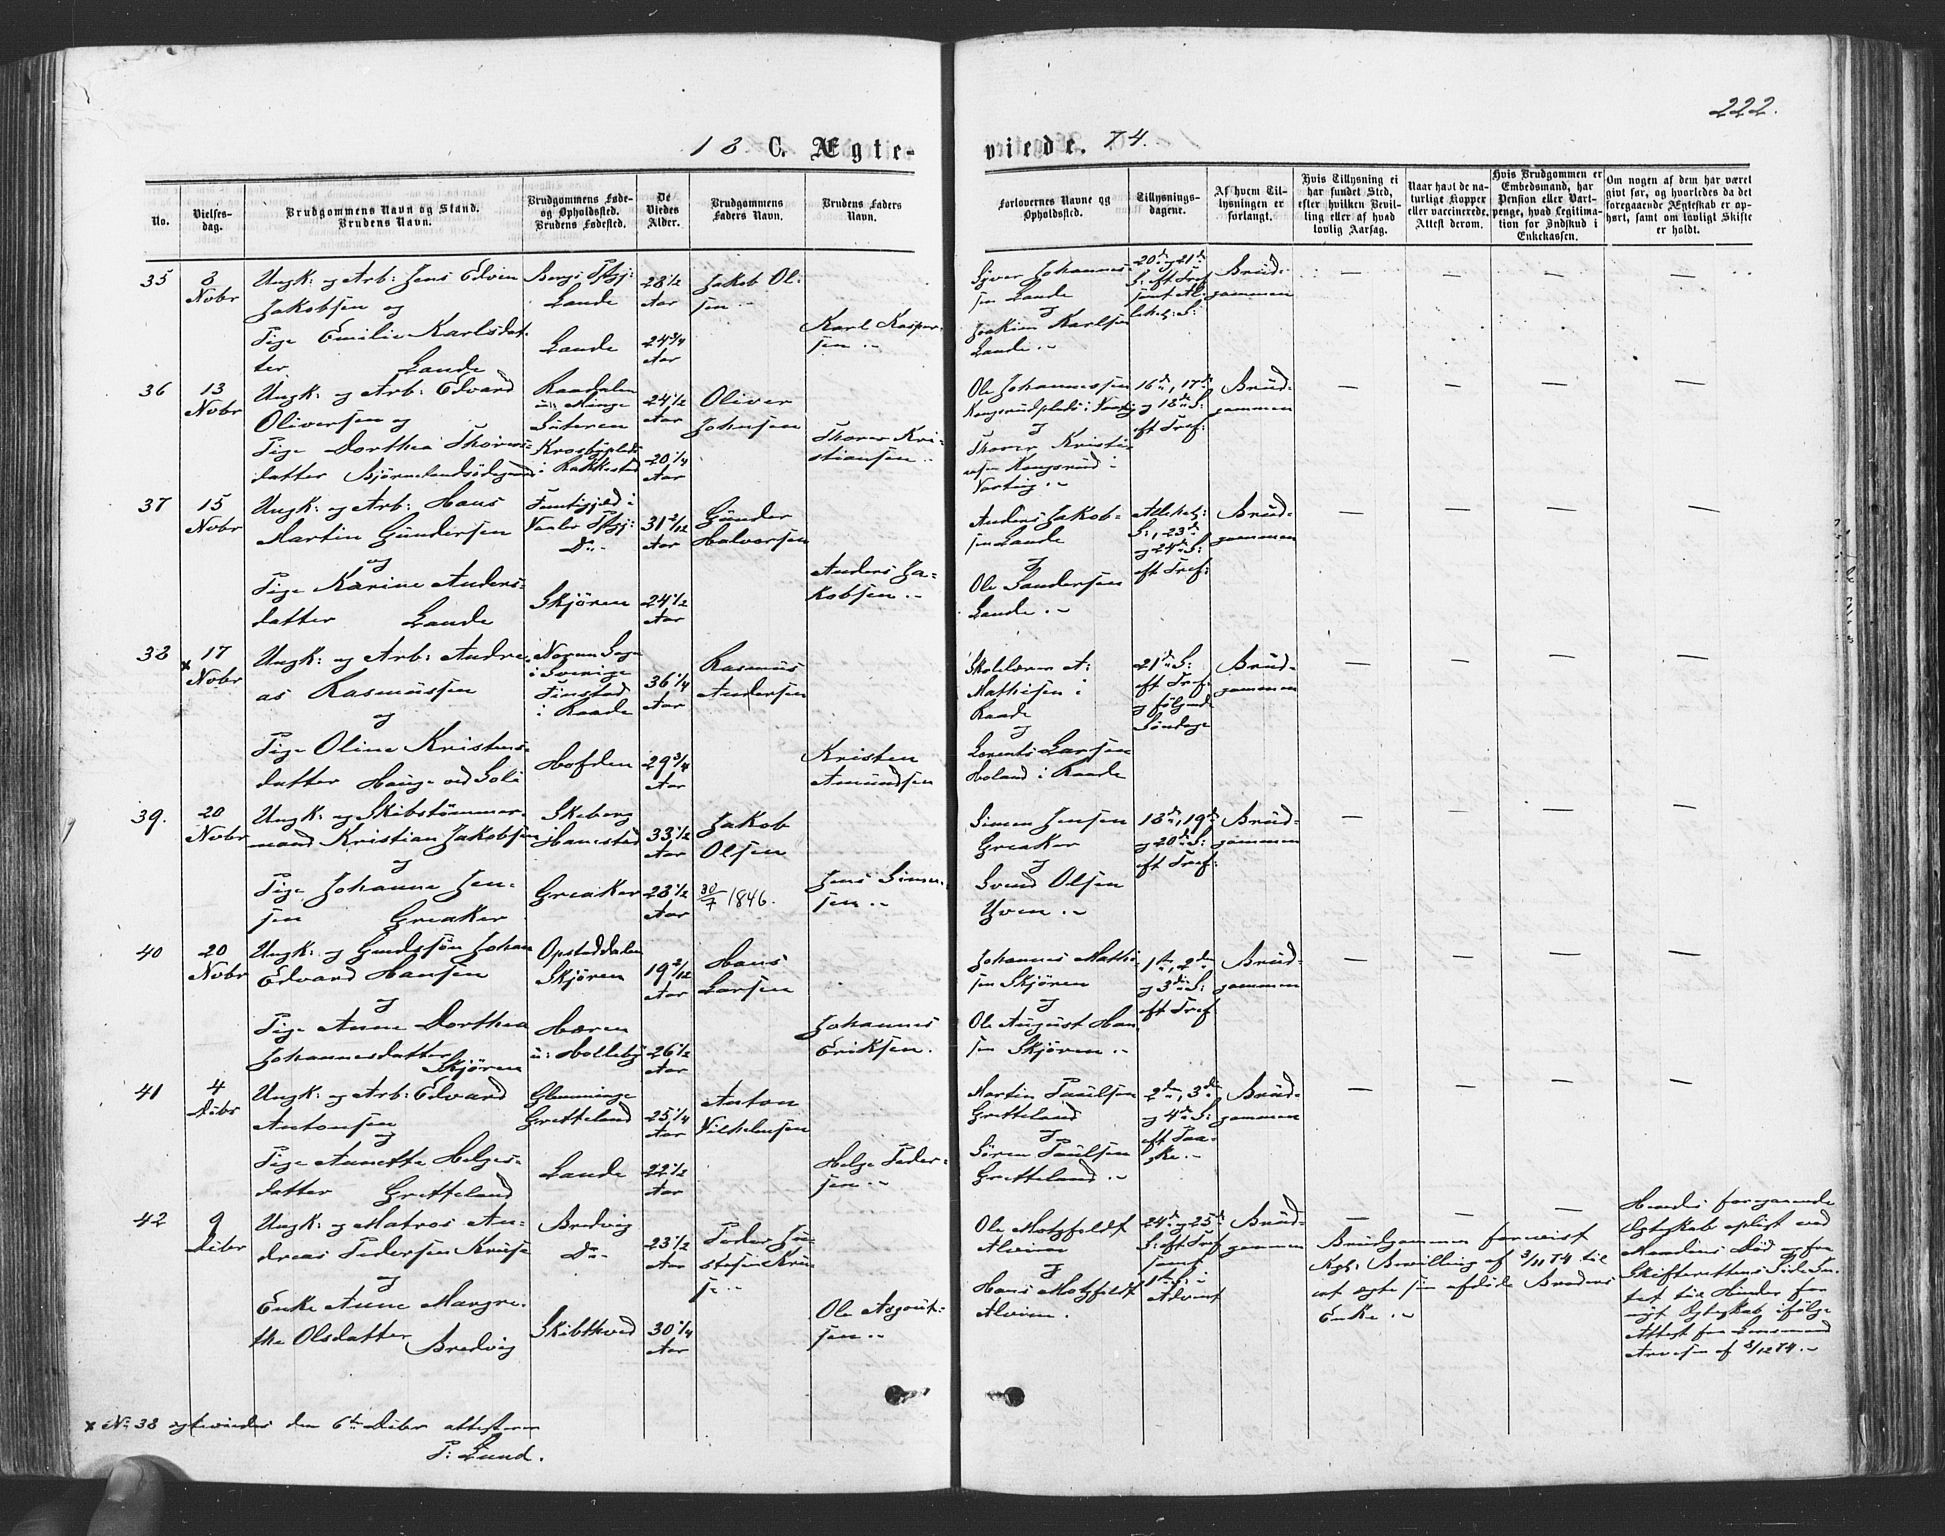 222.
18 C. Ægte-
viede. 74.
No.
Vielses-
dag.
Brudgommens Navn og Stand.
Brudens Navn.
Brudgommens Føde-
og Opholdssted.
Brudens Fødested.
De
Viedes
Alder.
Brudgommens
Faders Navn.
Brudens Faders
Navn.
Forlovernes Navne og
Opholdssted.
Tillysnings-
dagene.
Af hvem Til-
lysningen er
forlangt.
Hvis Tillysning ei
har fundet Sted,
efter hvilken Bevil-
ling eller af hvad
lovlig Aarsag.
Naar havt de na-
turlige Kopper
eller vaccinerede.
Attest derom.
Hvis Brudgommen er
Embedsmand, har
Pension eller Vart-
penge, hvad Legitima-
tion for Indskud i
Enkekassen.
Om nogen af dem har været
gift før, og hvorledes da det
foregaaende Ægteskab er op-
hørt, samt om lovligt Skifte
er holdt.
35
8
Novbr
Ungk: og Arb: Jens Edvin
Jakobsen og
Pige Emilie Karlsdat-
ter Lande
Bergs Prgj:
Lande
Lande
28 1/2
Aar
24 3/4
Aar
Jakob Ol-
sen
Karl Kasper-
sen
Syver Johannes-
sen Lande
og
Joakim Karlsen
Lande
20de og 21de
S: eft Tref
samt
Brud-
gommen
— — — —
36
13
Novbr
Ungk: og Arb: Edvard
Oliversen og
Pige Dorthea Thores-
datter
Raadalen
u: Minge
Sæteren
i Rakkestad
24 1/2
Aar
20 1/4
Aar
Oliver
Johnsen
Thorer Kri-
stiansen
Ole Johannessen
i Varteig
og
Thorer Kristi-
ansen Kongsrud i
Varteig
16de, 17de
og 18de S:
eft Tref:
Brud-
gommen
— — — —
37
15
Novbr
Ungk: og Arb: Hans
Martin Gundersen
og
Pige Karine Anders-
datter Lande
i
Vaaler Prgj:
Do
Skjøren
31 2/12
Aar
24 1/2
Aar
Gunder
Halvorsen
Anders Ja-
kobsen
Anders Jakob-
sen Lande
og
Ole Sandersen
Lande
S:, 23de
og 24de S:
eft Tref:
Brud-
gommen
— — — —
38
x 17
Novbr
Ungk: og Arb: Andre-
as Rasmussen
og
Pige Oline Kristens-
datter Hauge ved Soli
Sogn
i Sverige
Finstad
i Raade
Hofden
36 1/4
Aar
29 3/4
Aar
Rasmus
Andersen
Kristen
Amundsen
Skolelærer A:
Mathisen i
Raade
og
Lorents Larsen
Holand i Raade
21de S:
eft Tref.
og følgende
Søndage
Brud-
gommen
— — — —
39.
20
Novbr
Ungk: og Skibstømmer-
mand Kristian Jakobsen
og
Pige Johanne Jen-
sen Greaker
Skeberg
Hanestad
Greaker
33 1/2
Aar
28 1/2
Aar
Jakob
Olsen
30/7 1846.
Jens Simen-
sen
Simen Jensen
Greaker
og
Svend Olsen
Yven
18de, 19de
og 20de S:
eft Tref:
Brud-
gommen
— — — —
40
20
Novbr
Ungk: og Johan
Edvard Hansen
og
Pige Anne Dorthea
Johannesdatter
Skjøren
Opstaddalen
Skjøren
u: Holleby
19 2/12
Aar
26 1/2
Aar
Hans
Larsen
Johannes
Eriksen.
Johannes Mathi-
sen Skjøren
og
Ole August Han-
sen Skjøren
1ste, 2den
og 3die S:
eft Tref.
Brud-
gommen
— — — —
41
4
Dcbr
Ungk: og Arb: Edvard
Antonsen
og
Pige Annette Helges-
datter Gretteland
Glemminge
Gretteland
Lande
25 1/4
Aar
22 1/2
Aar
Anton
Vilhelmsen
Helge Peder-
sen
Martin Paulsen
Gretteland
og
Søren Paulsen
Gretteland
2den, 3die
og 4de S:
eft Paa-
ske
Brud-
gommen
— — — —
42
9
Dcbr
Ungk: og Matros An-
dreas Pedersen Kruse
og
Enke Anne Margre-
the Olsdatter Bredvig
Bredvig
Do
Skibthved
23 1/2
Aar
30 1/4
Aar
Peder Jo-
Kru-
se
Ole Asgout-
sen
Ole Motzfeldt
Alvim
og
Hans Motzfeldt
Alvim.
24de og 25de
S: eft Tref
samt
1ste S: i
Advent
Brud-
gommen
— — —
Brudgommen foreviist
Kgl: Bevilling af 3/11 74 til
at ægte sin afdøde Broders
Enke
Hendes foregaaende
Egteskab opløst ved
Mandens Død og fra
Skifterettens Side In-
tet til Hinder for
nyt Egteskab ifølge
Attest fra Lensmand
af 8/12 74
x No 38 egteviedes den 6te Dcbr attesteres
P: Lund.